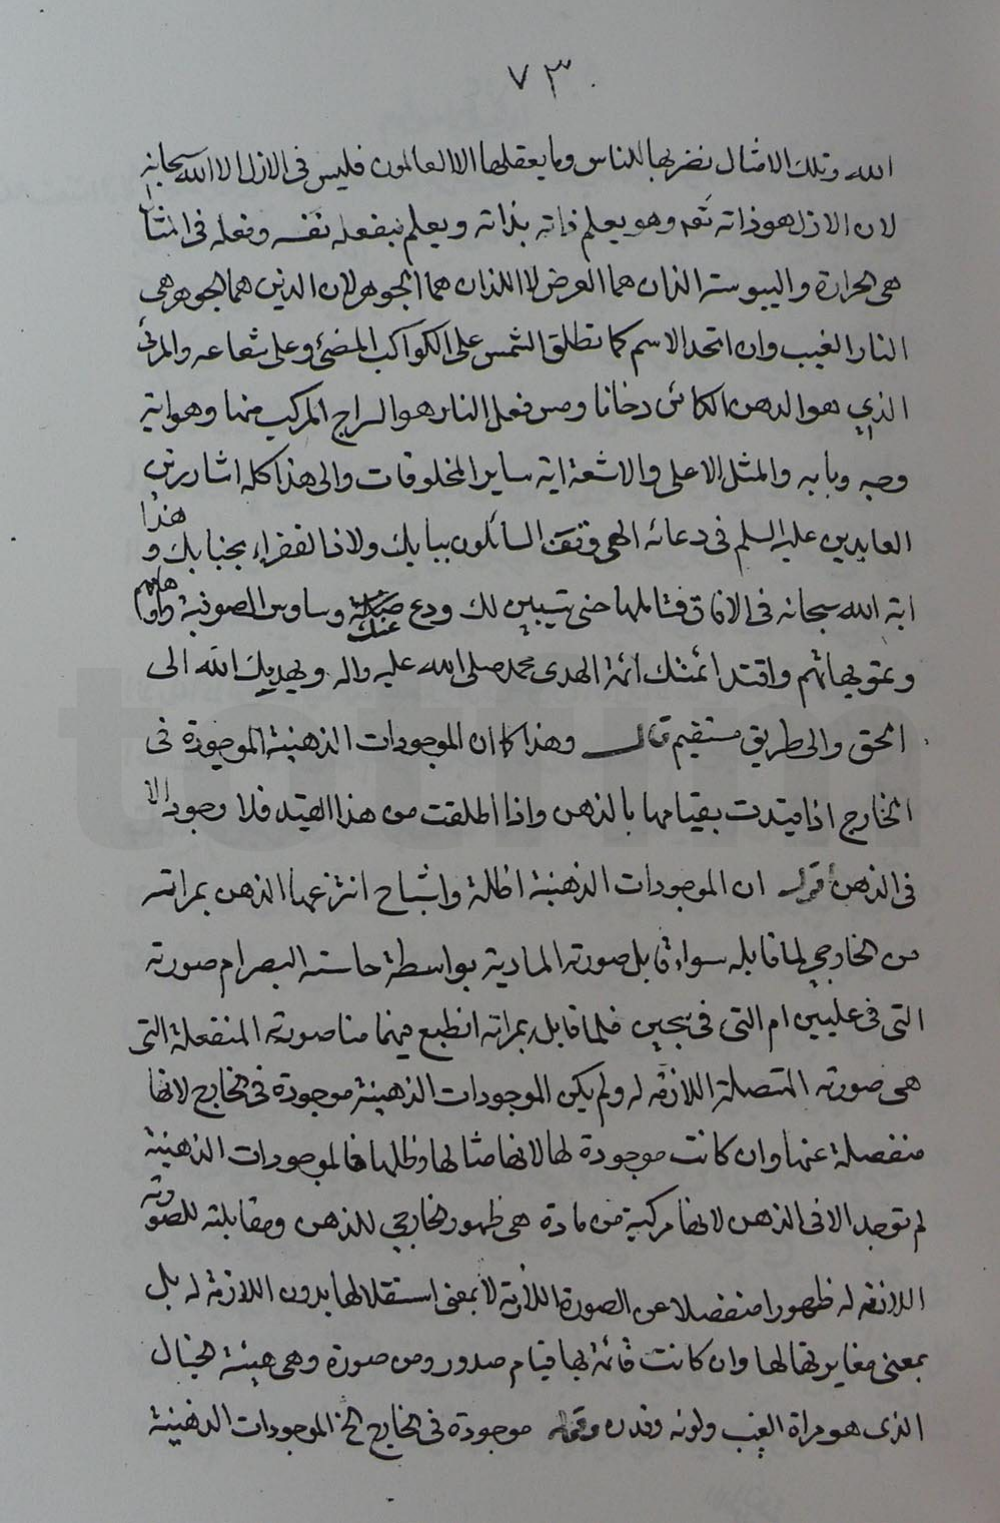 ٧٣
الله وتلك الامثال نضربها للناس وما يعقلها الا العالمون فليس في الازل الا الله سبحانه
لان الازل هو ذاته تعه وهو يعلم ذاته بذاته ويعلم بفعله نفسه وفعله في المثال
هي الحرارة واليبوسته الذان هما العرض لا اللذان هما الجوهر لان الذين هما الجوهر هي
النار الغيب وان اتحد الاسم كما تطلق الشمس على الكواكب المضئ وعلى شعاعه والمرئي
الذي هو الدهن الكائن دخانا ومس فعل النار هو السراج المركب منها وهو اية
وجه وبابه والمثل الاعلى والاشعة اية ساير المخلوقات والى هذا كله اشار زين
العابدين عليه السلم في دعائه الهي وقف السائلون ببابك ولاذ الفقراء بجنابك و هذا
اية الله سبحانه في الافاق فتاملها حتى تتبين لك ودع عنك وساوس الصوفية واوهامهم
وتمويهاتهم واقتد ائمتك ائمة الهدى محمد صلى الله عليه واله ويهديك الله الى
الحق والى طريق مستقيم قال وهذا كما ان الموجودات الذهنية الموجودة في
الخارج اذا قيدت بقيامها بالذهن واذا اطلقت من هذا القيد فلا وجود الا
في الذهن أقول ان الموجودات الذهنية اظلة واشباح انتزعها الذهن بمراته
من الخارجي لما قابله سواء قابل صورته المادية بواسطة حاسة البصر ام صورته
التي في عليين ام التي في سجين فلما قابل بمراته انطبع فيهما منا صورته المنفعلة التي
هي صورته المتصلة اللازمة له ولم يكن الموجودات الذهنية موجودة في الخارج لانها
منفصلة عنها وان كانت موجودة لها لانها مثالها وظلها فالموجودات الذهنية
لم توجد الا في الذهن لانها مركبة من مادة هي ظهور الخارجي للذهن ومقابلته للصورة
اللازمة له ظهورا منفصلا عن الصورة اللازمة لا بمعنى استقلالها بدون اللازمة له بل
بمعنى مغايرتها لها وان كانت قائمة بها قيام صدور ومن صورة وهي هيئة الخيال
الذي هو مراة الغيب ولونه وقدره وقوله موجودة في الخارج الخ الموجودات الذهنية